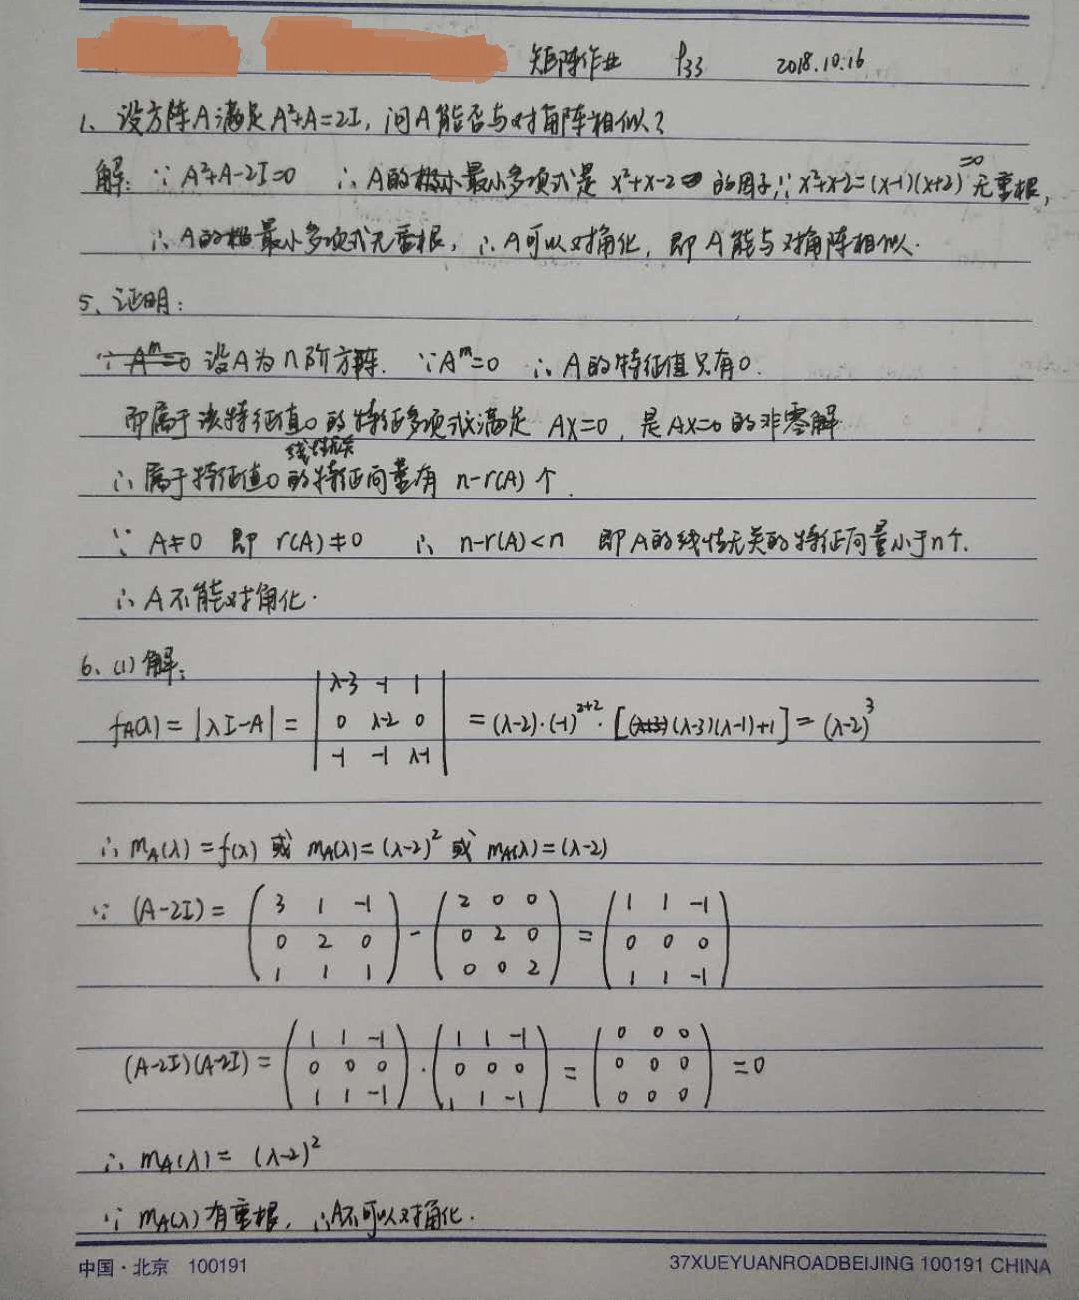 矩阵作业 P33 2018.10.16
1、设方阵A满足A²+A=2I，问A能否与对角阵相似？
解：∵ A²+A-2I=0 ∴ A的最小多项式是 x²+x-2 的因子，∵ x²+x-2=(x-1)(x+2)=0 无重根，
∴ A的最小多项式无重根，∴ A可以对角化，即A能与对角阵相似.
5、证明：
设A为n阶方阵. ∵A^m=0 ∴ A的特征值只有0.
即属于该特征值0的特征多项式满足 AX=0，是AX=0的非零解
∴ 属于特征值0的线性无关特征向量有 n-r(A) 个.
∵ A≠0 即 r(A)≠0 ∴ n-r(A)<n 即A的线性无关的特征向量小于n个.
∴ A不能对角化.
6、(1) 解：
f_A(λ) = |λI-A| = | λ-3 -1 1 ; 0 λ-2 0 ; -1 -1 λ-1 | = (λ-2)·(-1)^{2+2}·[(λ-3)(λ-1)+1] = (λ-2)³
∴ m_A(λ) = f(λ) 或 m_A(λ) = (λ-2)² 或 m_A(λ) = (λ-2)
∵ (A-2I) = ( 3 1 -1 ; 0 2 0 ; 1 1 1 ) - ( 2 0 0 ; 0 2 0 ; 0 0 2 ) = ( 1 1 -1 ; 0 0 0 ; 1 1 -1 )
(A-2I)(A-2I) = ( 1 1 -1 ; 0 0 0 ; 1 1 -1 ) · ( 1 1 -1 ; 0 0 0 ; 1 1 -1 ) = ( 0 0 0 ; 0 0 0 ; 0 0 0 ) = 0
∴ m_A(λ) = (λ-2)²
∵ m_A(λ) 有重根，∴A不可以对角化.
中国·北京 100191 37XUEYUANROADBEIJING 100191 CHINA